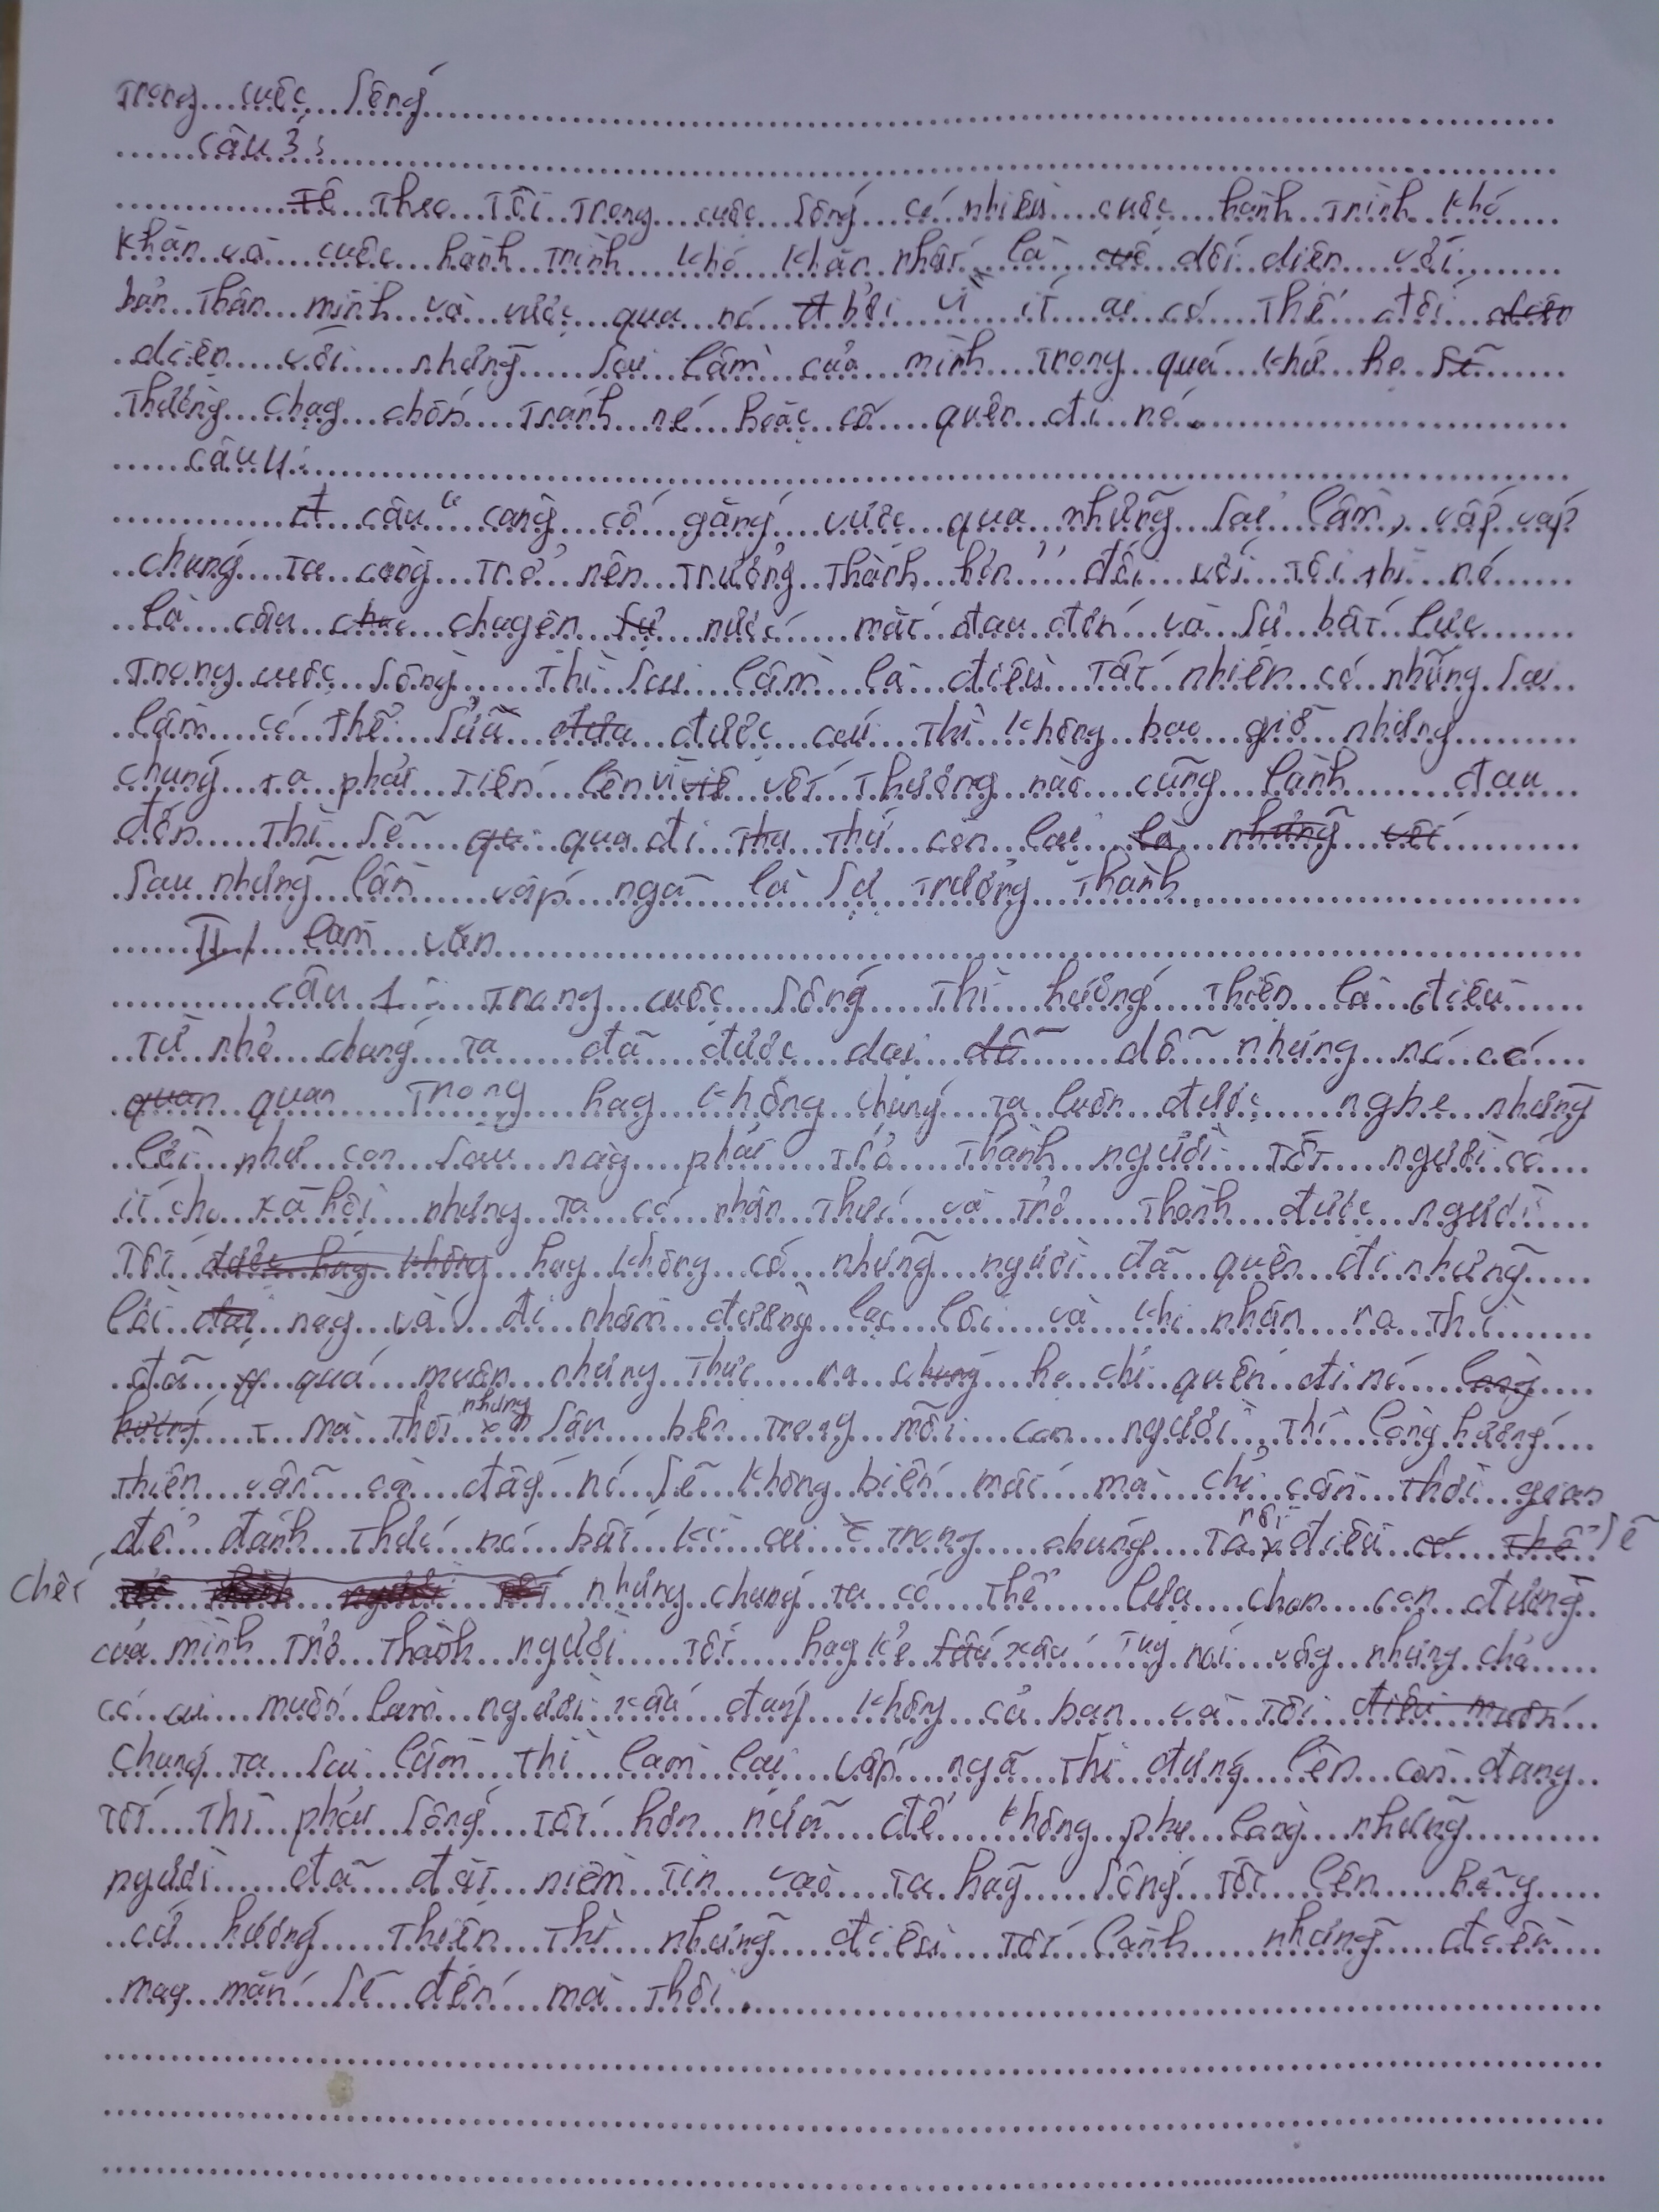 Trong cuộc sống
câu 3:
Theo tôi trong cuộc sống có nhiều cuộc hành trình khó
khăn và cuộc hành trình khó khăn nhất là đối diện với
bản thân mình và vượt qua nó bởi vì ít ai có thể đối
diện với những sai lầm của mình trong quá khứ họ
thường chạy chốn tránh né hoặc cố quên đi nó.
câu 4:
câu " càng cố gắng vượt qua những sai lầm, vấp váp
chúng ta càng trở nên trưởng thành hơn " đối với tôi thì nó
là câu chuyện nước mắt đau đớn và sự bất lực
trong cuộc sống thì sai lầm là điều tất nhiên có những sai
lầm có thể sửa được cái thì không bao giờ nhưng
chúng ta phải tiến lên vì vết thương nào cũng lành đau
đớn thì sẽ qua đi thứ còn lại
sau những lần vấp ngã là sự trưởng thành
II/ làm văn
câu 1: Trong cuộc sống thì hướng thiện là điều
từ nhỏ chúng ta đã được dại dỗ nhưng nó có
quan trọng hay không chúng ta luôn được nghe những
lời như con sau này phải trở thành người tốt người có
ít cho xã hội nhưng ta có nhận thức và trở thành được người
tốt hay không có những người đã quên đi những
lời này và đi nhầm đường lạc lối và khi nhận ra thì
đã quá muộn nhưng thực ra họ chỉ quên đi nó
mà thôi nhưng sâu bên trong mỗi con người thì lòng hướng
thiện vẫn còn đấy nó sẽ không biến mất mà chỉ cần thời gian
để đánh thức nó bất kì ai trong chúng ta rồi điều sẽ
chết nhưng chúng ta có thể lựa chọn con đường
của mình trở thành người tốt hay kẻ xấu tuy nói vậy nhưng chả
có ai muốn làm người xấu đúng không cả bạn và tôi
chúng ta sai lầm thì làm lại vấp ngã thì đứng lên còn đang
tốt thì phải sống tốt hơn nữa để không phụ lòng những
người đã đặt niềm tin vào ta hãy sống tốt lên hãy
cứ hướng thiện thì những điều tốt lành những điều
may mắn sẽ đến mà thôi.